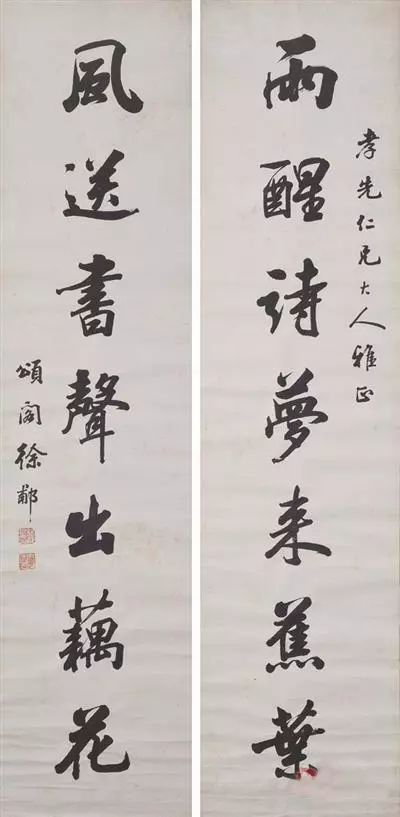 孝先仁兄大人雅正
雨醒詩夢来蕉葉
風送書聲出藕花
頌閣徐郙